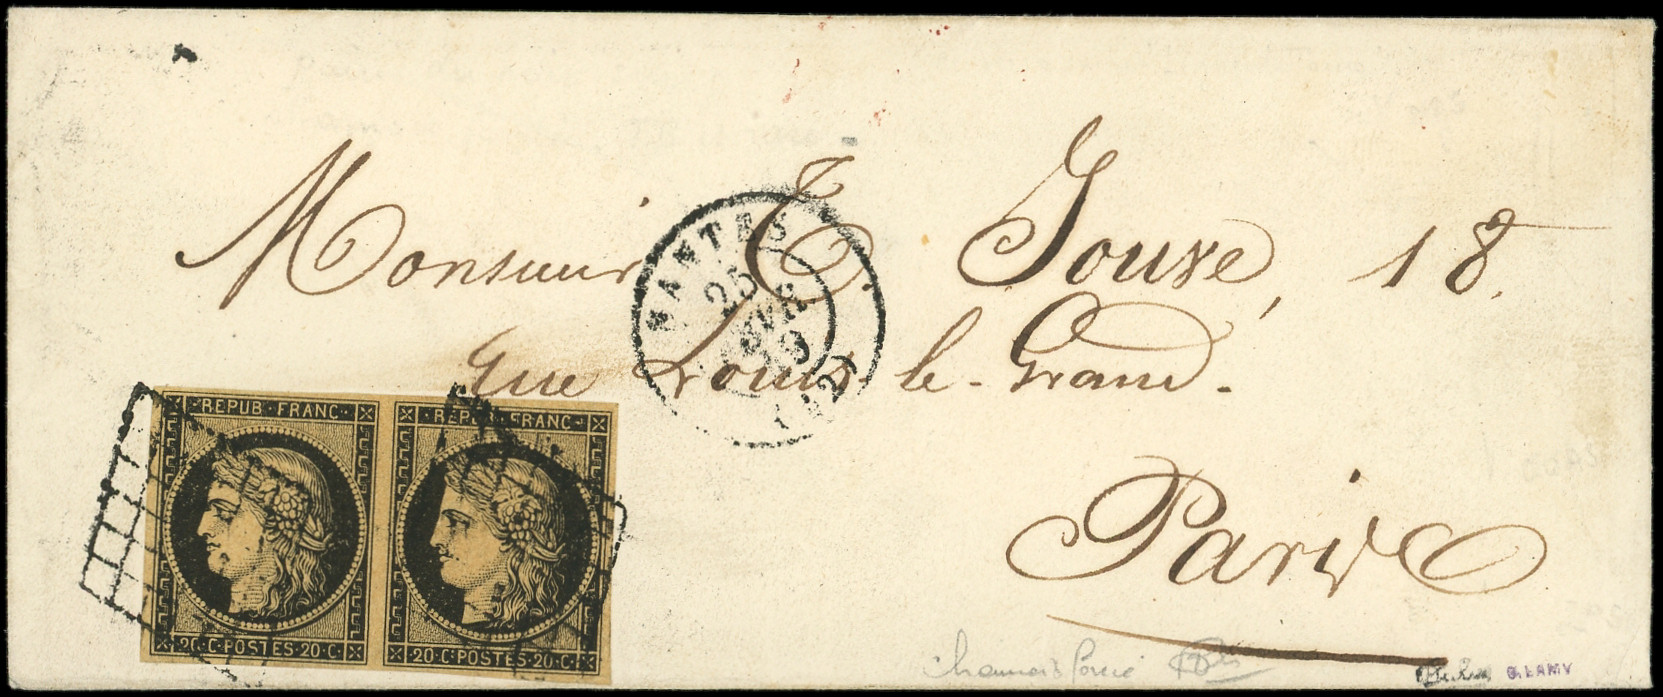 Monsieur E. Gouve, 18.
rue Louis-le-Grand.
Paris
NANTES
25
(42)
REPUB·FRANC·
20·C·POSTES·20·C·
REPUB·FRANC·
20·C·POSTES·20·C·
chamois foncé